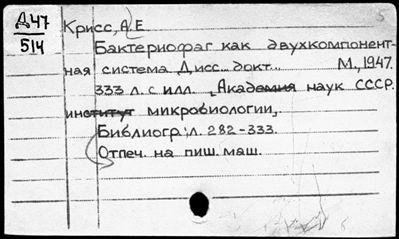 Д47
514
Крисс, А. Е
Бактериофаг как двухкомпонент-
ная система. Дисс... докт... М., 1947.
333 л. с илл. "Академия наук СССР.
институт микробиологии".
Библиогр: л. 282-333.
Отпеч. на пиш. маш.